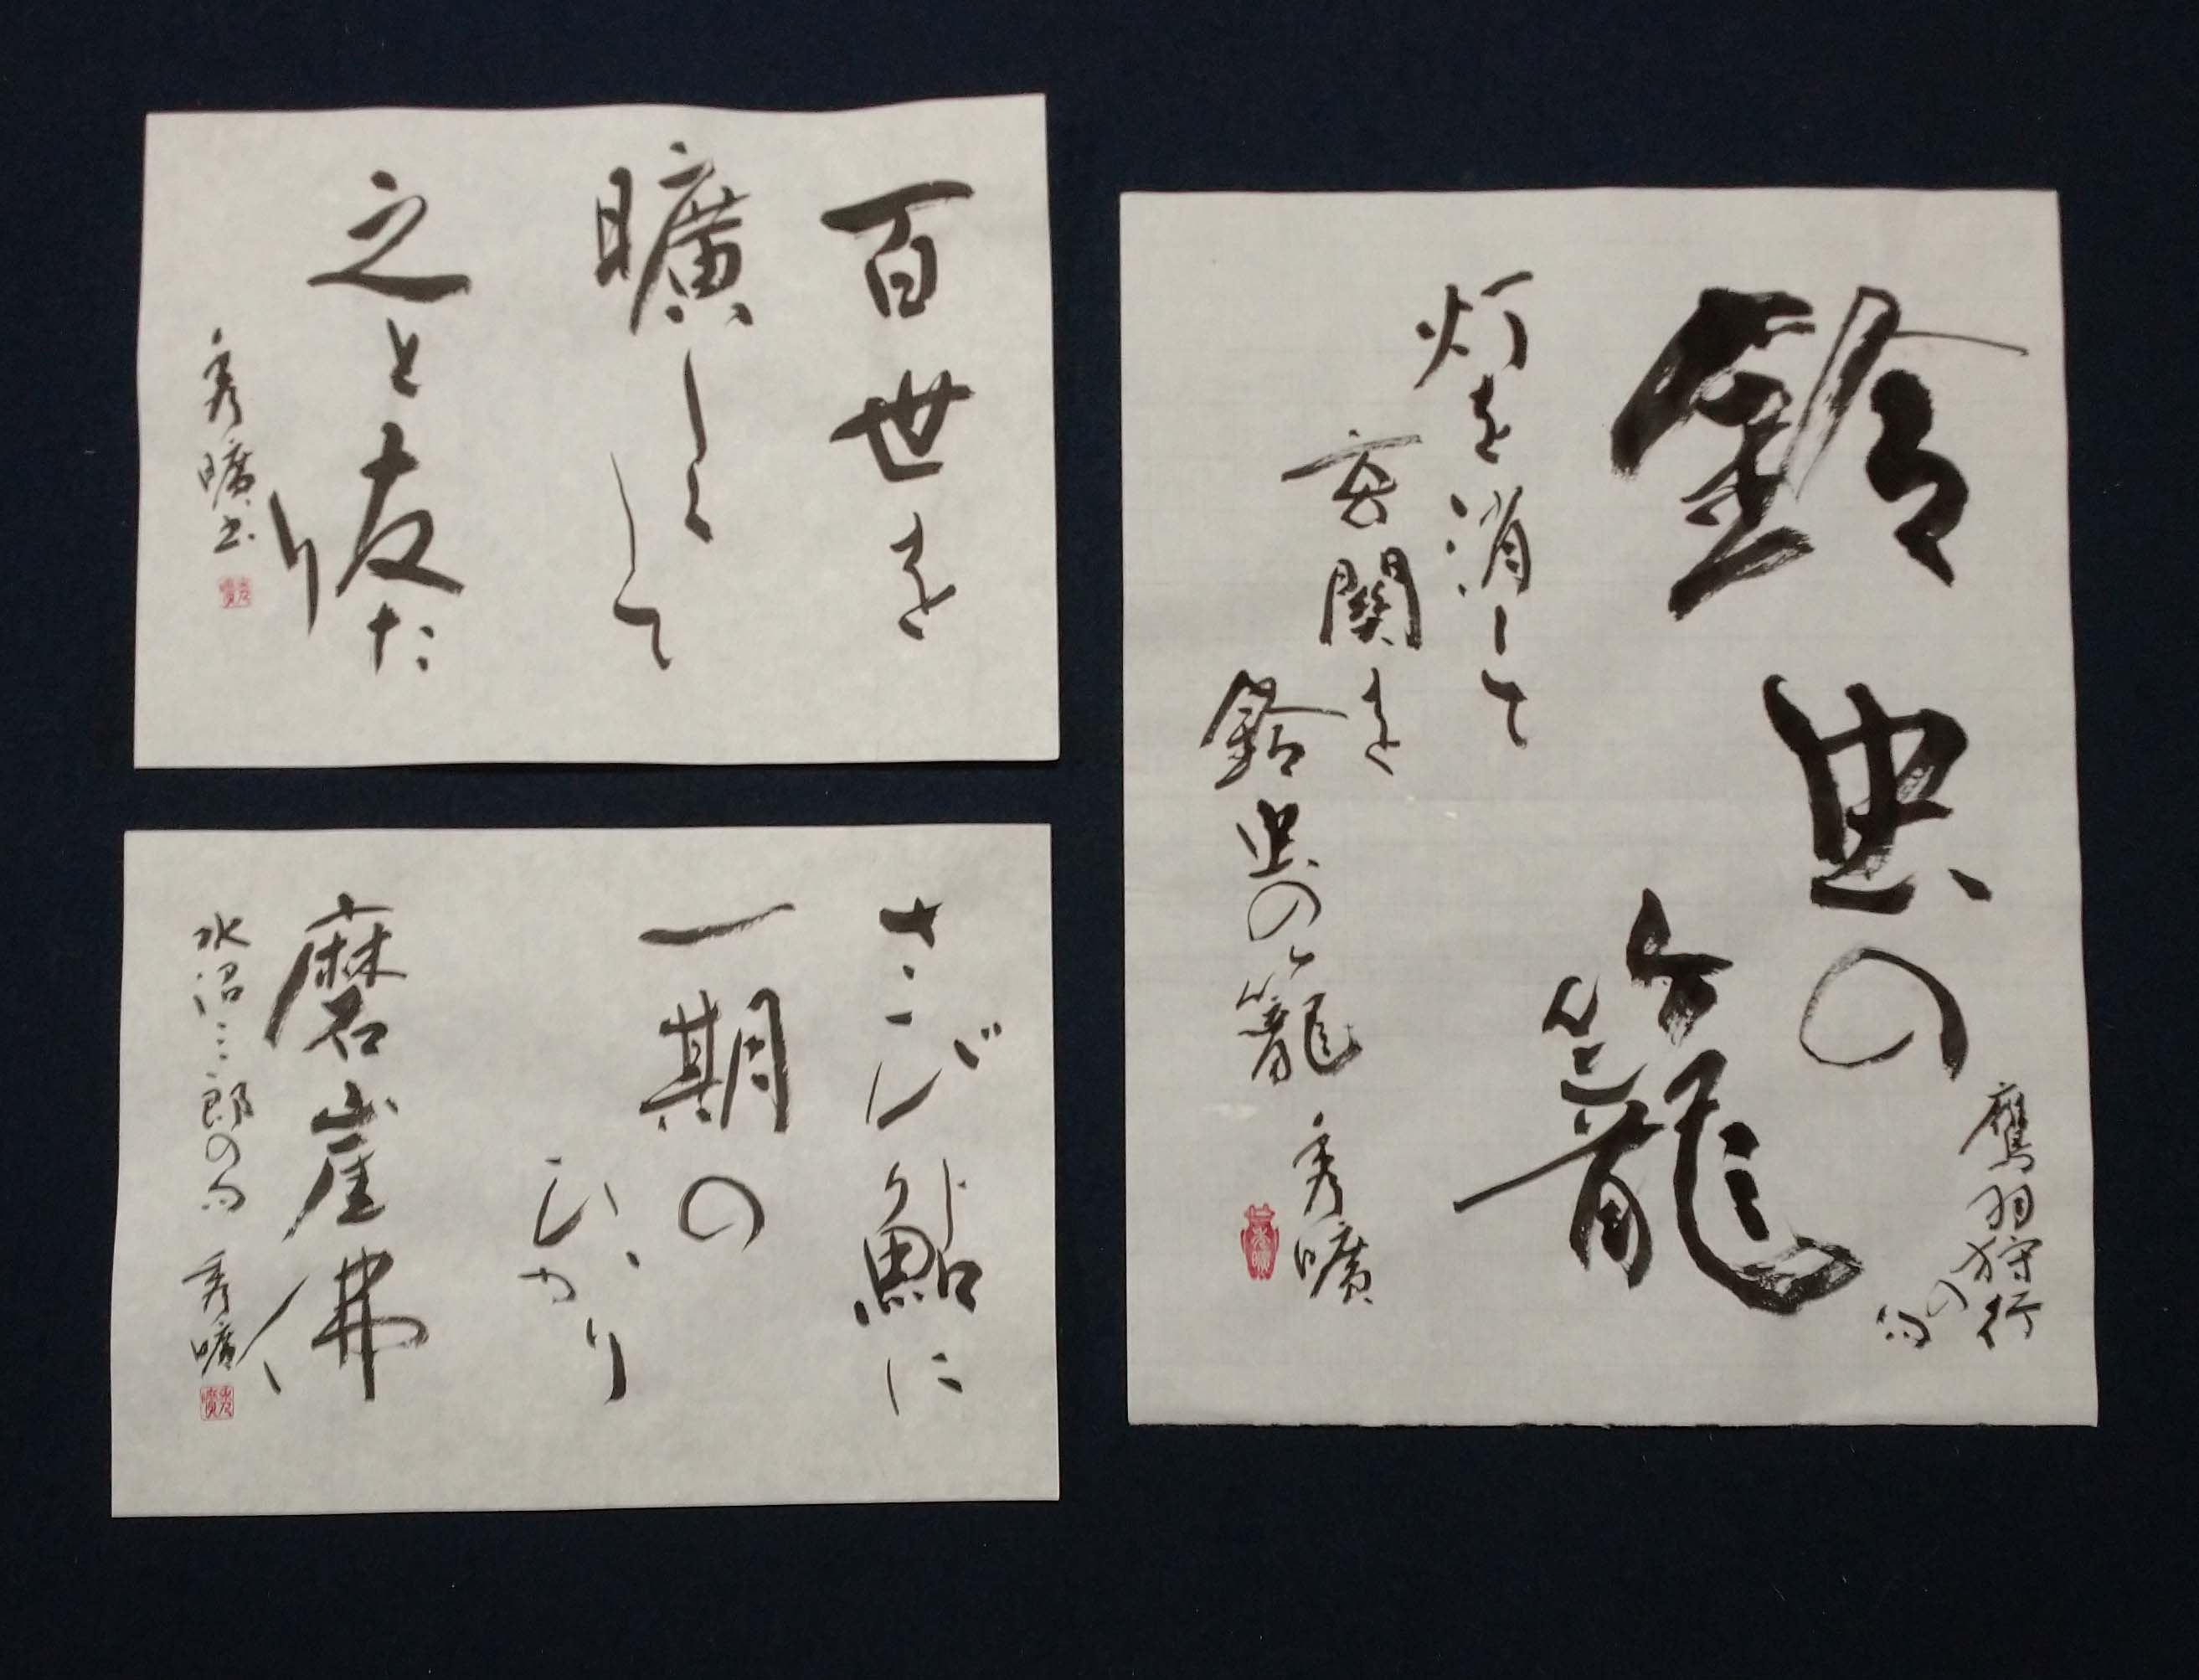 百世を
曠しくして
之と友たり
秀曠書
さび鮎に
一期の
ひかり
磨崖佛
水沼三郎の句 秀曠
鈴虫の
籠
鷹羽狩行
の句
灯を消して
玄関を
鈴虫の籠
秀曠